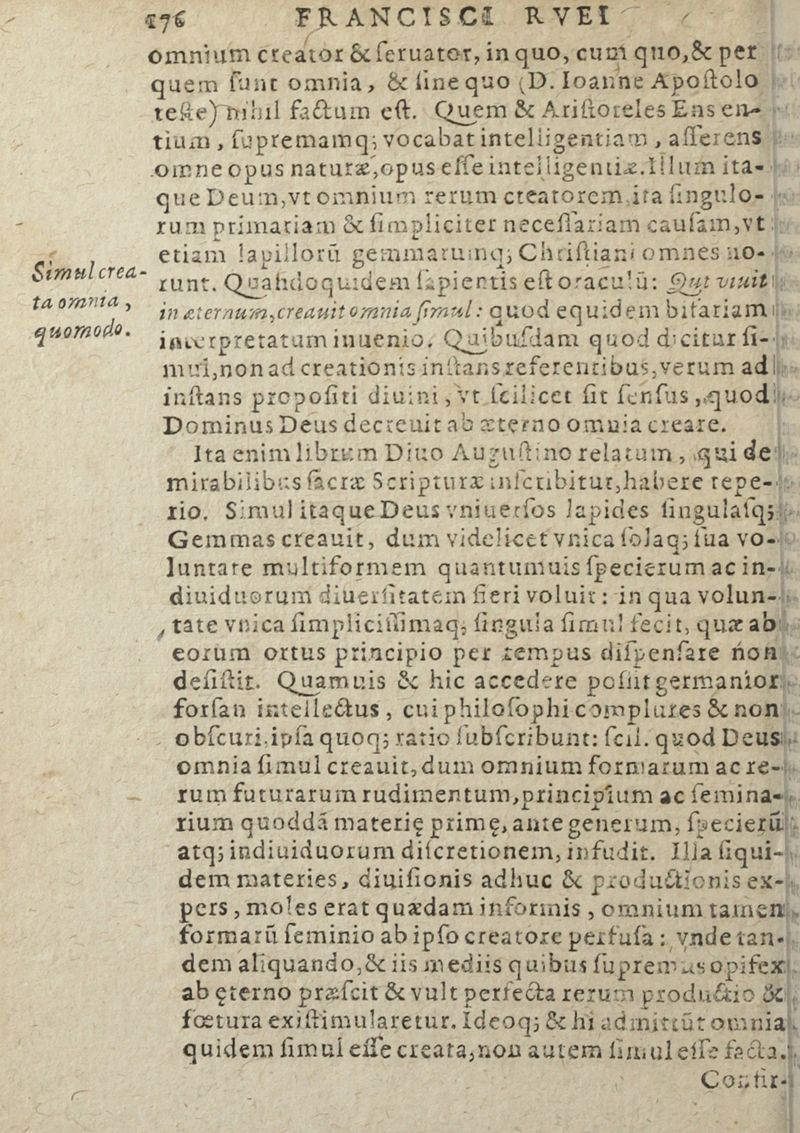 176 FRANCISCI RVEI
omnium creator & ſeruator, in quo, cum quo, & per
quem ſunt omnia, & ſine quo (D. Ioanne Apoſtolo
teſte) nihil factum eſt. Quem & Ariſtoteles Ens en-
tium, ſupremamq; vocabat intelligentiam, aſſerens
omne opus naturæ, opus eſſe intelligentiæ. Illum ita-
que Deum, vt omnium rerum creatorem, ita ſingulo-
rum primariam & ſimpliciter neceſſariam cauſam, vt
etiam lapillorū gemmarumq; Chriſtiani omnes no-
Simul crea-
ta omnia,
quomodo.
runt. Quandoquidem ſapientis eſt oraculū: Qui viuit
in æternum, creauit omnia ſimul: quod equidem bifariam
interpretatum inuenio. Quibuſdam quod dicitur ſi-
mul, non ad creationis inſtans referentibus, verum ad
inſtans propoſiti diuini, vt ſcilicet ſit ſenſus, quod
Dominus Deus decreuit ab æterno omnia creare.
Ita enim librum Diuo Auguſtino relatum, qui de
mirabilibus ſacræ Scripturæ inſcribitur, habere repe-
rio. Simul itaque Deus vniuerſos lapides ſingulaſq;
Gemmas creauit, dum videlicet vnica ſolaq; ſua vo-
luntate multiformem quantumuis ſpecierum ac in-
diuiduorum diuerſitatem fieri voluit: in qua volun-
tate vnica ſimpliciſſimaq; ſingula ſimul fecit, quæ ab
eorum ortus principio per tempus diſpenſare non
deſiſtit. Quamuis & hic accedere poſſit germanior
forſan intellectus, cui philoſophi complures & non
obſcuri, ipſa quoq; ratio ſubſcribunt: ſcil. quod Deus
omnia ſimul creauit, dum omnium formarum ac re-
rum futurarum rudimentum, principium ac ſemina-
rium quoddā materię primę, ante generum, ſpecierū
atq; indiuiduorum diſcretionem, infudit. Illa ſiqui-
dem materies, diuiſionis adhuc & productionis ex-
pers, moles erat quædam informis, omnium tamen
formarū ſeminio ab ipſo creatore perfuſa: vnde tan-
dem aliquando, & iis mediis quibus ſupremus opifex
ab ęterno præſcit & vult perfecta rerum productio &
fœtura exiſtimularetur. Ideoq; & hi admittūt omnia
quidem ſimul eſſe creata, non autem ſimul eſſe facta.
Contir-